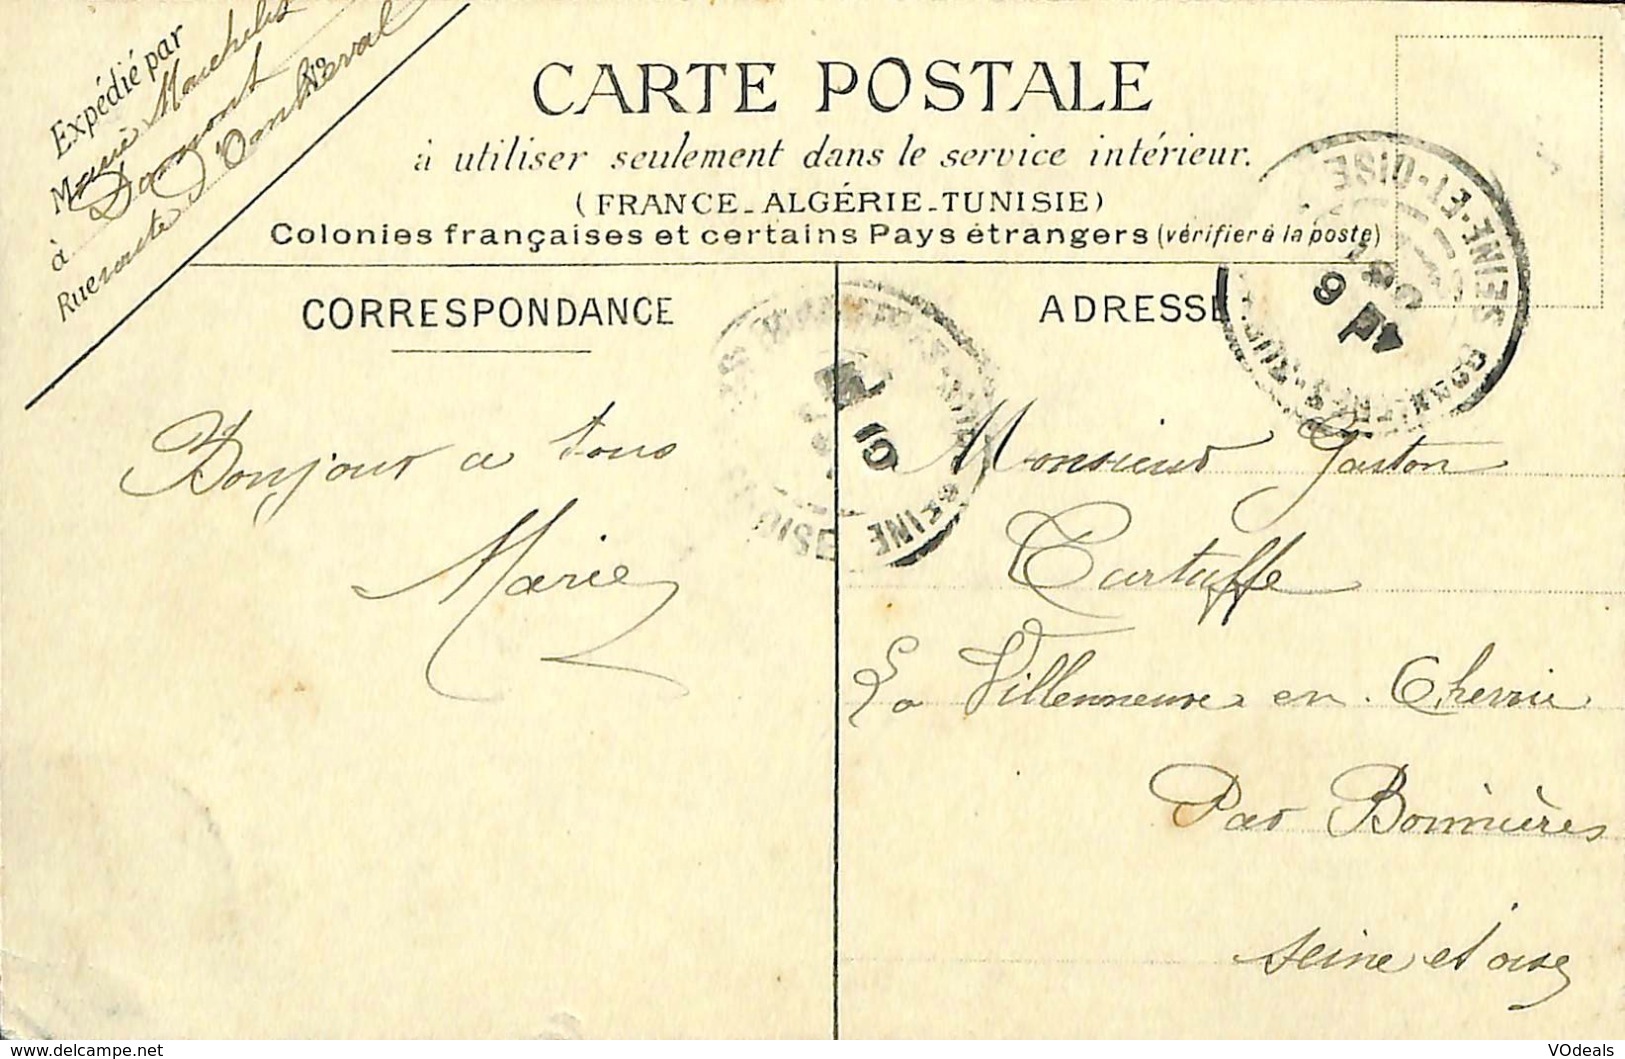 Expédié par
Marie
à Domont
Rue
No
CARTE POSTALE
à utiliser seulement dans le service intérieur.
(FRANCE-ALGÉRIE-TUNISIE)
Colonies françaises et certains Pays étrangers (vérifier à la poste)
CORRESPONDANCE
Bonjour a tous
Marie
SEINE
OISE
10
ADRESSE
SEINE-ET-OISE
9
Monsieur Gaston
Cartuffe
La Villenneuve en Chevrie
Par Bonnières
Seine et oise
www.delcampe.net
VOdeals